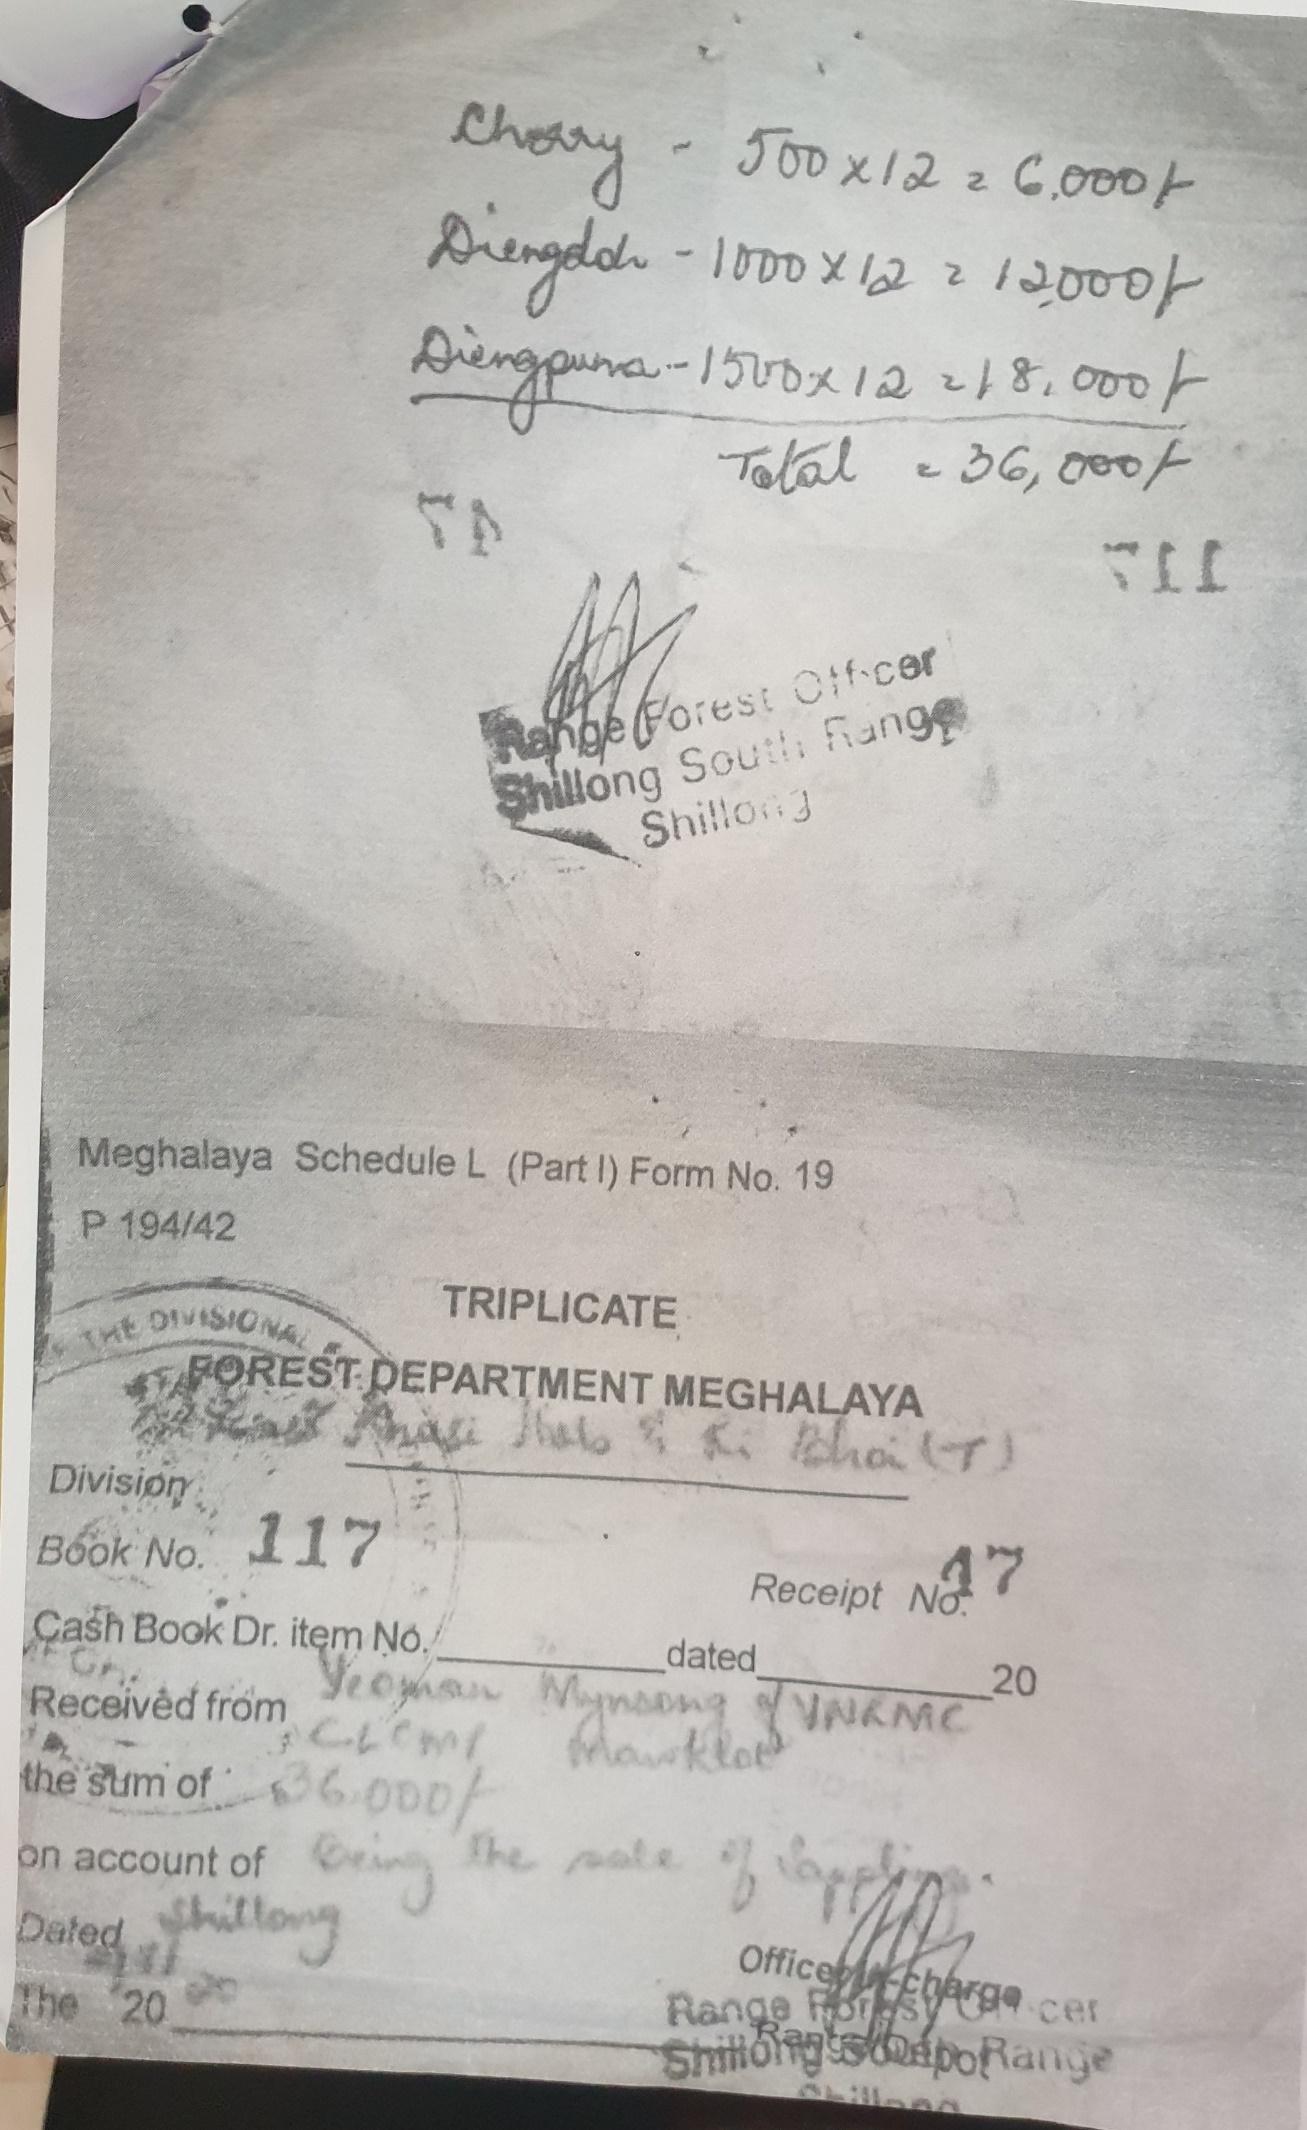 Cherry - 500 x 12 = 6,000/-
Diengdoh - 1000 x 12 = 12,000/-
Diengpuma - 1500 x 12 = 18,000/-
Total = 36,000/-
47
117
Range Forest Officer
Shillong South Range
Shillong
Meghalaya Schedule L (Part I) Form No. 19
P 194/42
THE DIVISIONAL
TRIPLICATE
FOREST DEPARTMENT MEGHALAYA
Khasi Hills & Ri Bhoi (T)
Division
Book No. 117
Receipt No. 47
Cash Book Dr. item No. dated 20
Received from Yeoman Mynsong of VNRMC
CLLMP Mawklot
the sum of 36,000/-
on account of Being the sale of Sappling.
Dated Shillong
The 20
Officer-in-charge
Range Forest Officer
Depot
Shillong South Range
Shillong